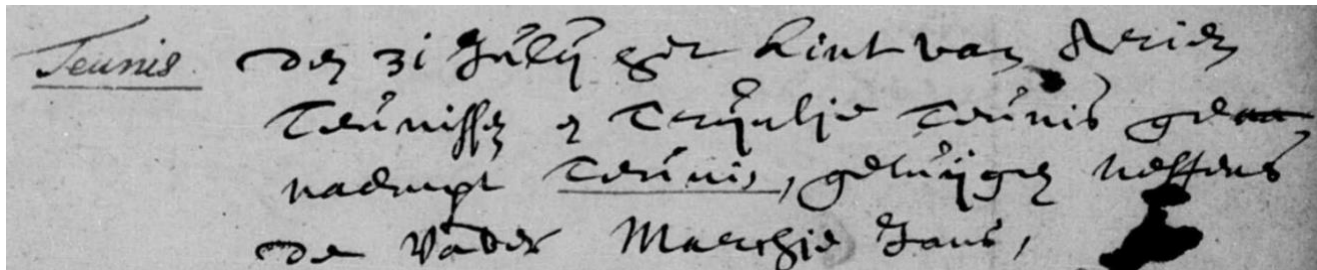 Teunis. den 31 Julij een kint van Arien
Teunissen e Trijntje Teunis gena
naempt Teunis, getuijgen neffens
de vader Maerchie Jans,